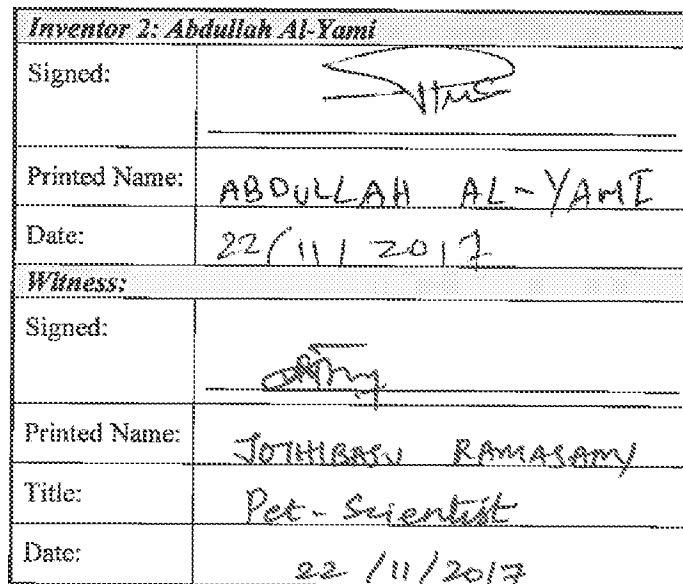 Inventor 2: Abdullah Al-Yami
Signed:
Printed Name: ABDULLAH AL-YAMI
Date: 22/11/2017
Witness:
Signed:
Printed Name: JOTHIBASU RAMASAMY
Title: Pet-Scientist
Date: 22/11/2017